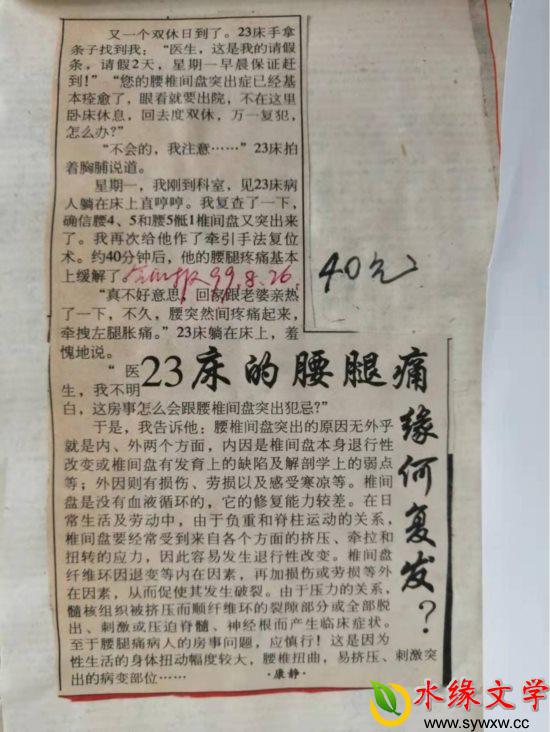 又一个双休日到了。23床手拿
条子找到我：“医生，这是我的请假
条，请假2天，星期一早晨保证赶
到！”“您的腰椎间盘突出症已经基
本痊愈了，眼看就要出院，不在这里
卧床休息，回去度双休，万一复犯，
怎么办？”
“不会的，我注意……”23床拍
着胸脯说道。
星期一，我刚到科室，见23床病
人躺在床上直哼哼。我复查了一下，
确信腰4、5和腰5骶1椎间盘又突出来
了。我再次给他作了牵引手法复位
术。约40分钟后，他的腰腿疼痛基本
上缓解了。
99.8.26.
40元
“真不好意思，回家跟老婆亲热
了一下，不久，腰突然间疼痛起来，
牵拽左腿胀痛。”23床躺在床上，羞
愧地说。
23床的腰腿痛
缘何复发？
“医
生，我不明
白，这房事怎么会跟腰椎间盘突出犯忌？”
于是，我告诉他：腰椎间盘突出的原因无外乎
就是内、外两个方面，内因是椎间盘本身退行性
改变或椎间盘有发育上的缺陷及解剖学上的弱点
等；外因则有损伤、劳损以及感受寒凉等。椎间
盘是没有血液循环的，它的修复能力较差。在日
常生活及劳动中，由于负重和脊柱运动的关系，
椎间盘要经常受到来自各个方面的挤压、牵拉和
扭转的应力，因此容易发生退行性改变。椎间盘
纤维环因退变等内在因素，再加损伤或劳损等外
在因素，从而促使其发生破裂。由于压力的关系，
髓核组织被挤压而顺纤维环的裂隙部分或全部脱
出、刺激或压迫脊髓、神经根而产生临床症状。
至于腰腿痛病人的房事问题，应慎行！这是因为
性生活的身体扭动幅度较大，腰椎扭曲，易挤压、刺激突
出的病变部位……
·康静·
水缘文学
www.sywxw.cc